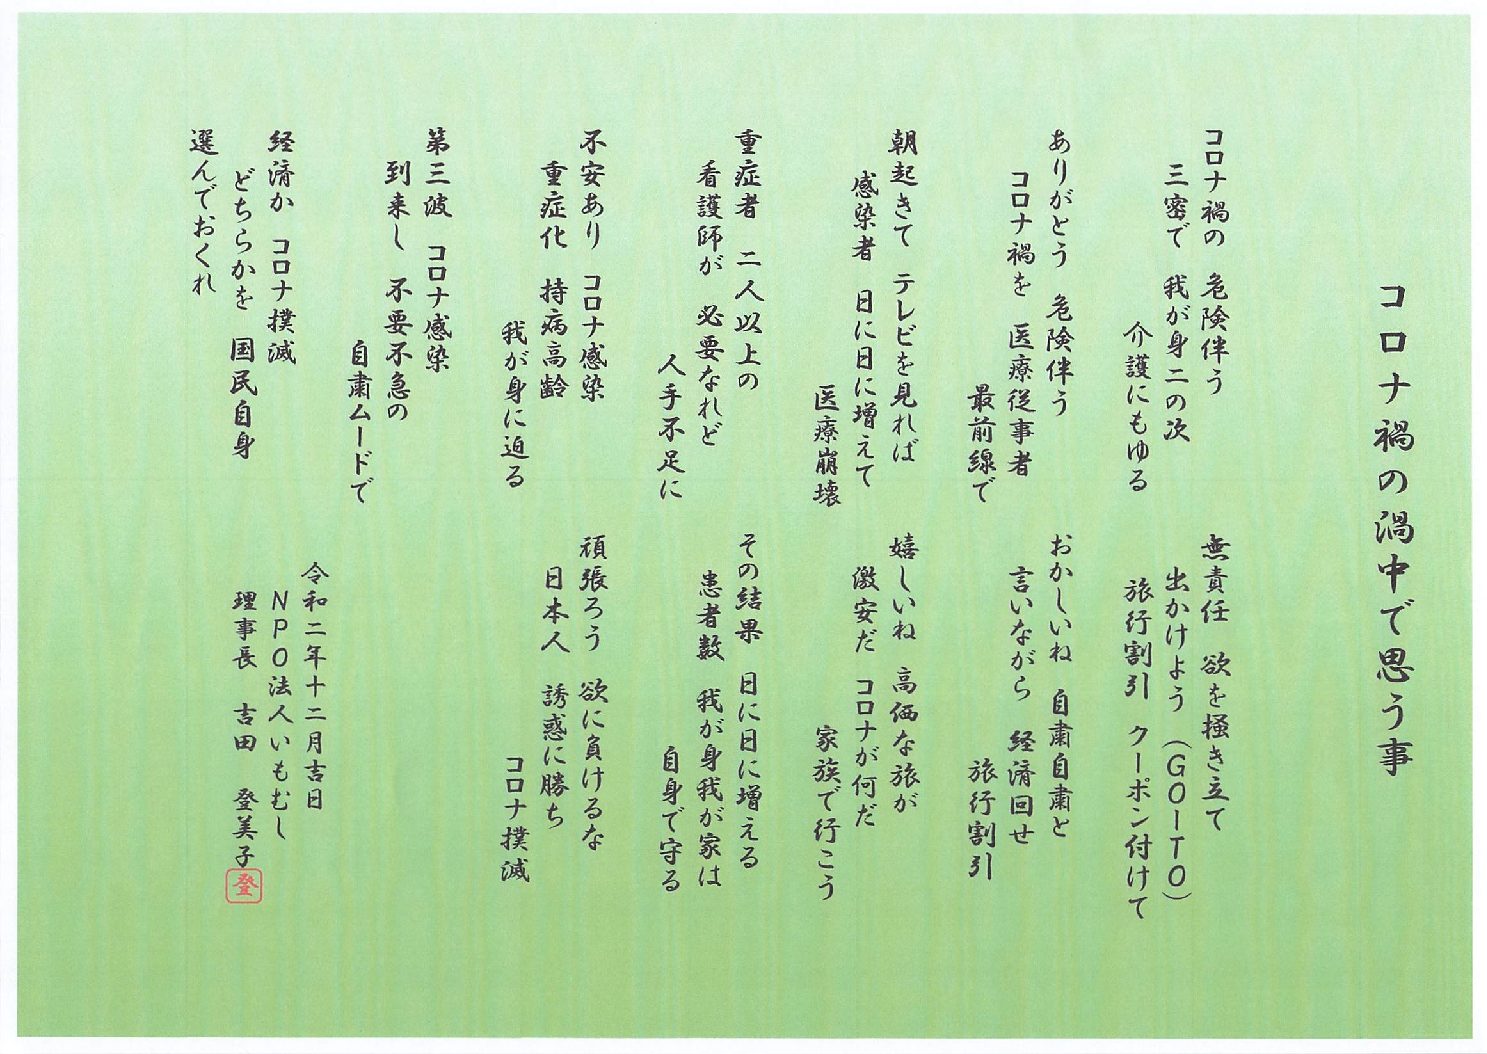 コロナ禍の渦中で思う事
コロナ禍の 危険伴う
三密で 我が身二の次
介護にもゆる
ありがとう 危険伴う
コロナ禍を 医療従事者
最前線で
朝起きて テレビを見れば
感染者 日に日に増えて
医療崩壊
重症者 二人以上の
看護師が 必要なれど
人手不足に
不安あり コロナ感染
重症化 持病高齢
我が身に迫る
第三波 コロナ感染
到来し 不要不急の
自粛ムードで
経済か コロナ撲滅
どちらかを 国民自身
選んでおくれ
無責任 欲を掻き立て
出かけよう （GO-TO）
旅行割引 クーポン付けて
おかしいね 自粛自粛と
言いながら 経済回せ
旅行割引
嬉しいね 高価な旅が
激安だ コロナが何だ
家族で行こう
その結果 日に日に増える
患者数 我が身我が家は
自身で守る
頑張ろう 欲に負けるな
日本人 誘惑に勝ち
コロナ撲滅
令和二年十二月吉日
NPO法人いもむし
理事長 吉田 登美子
登